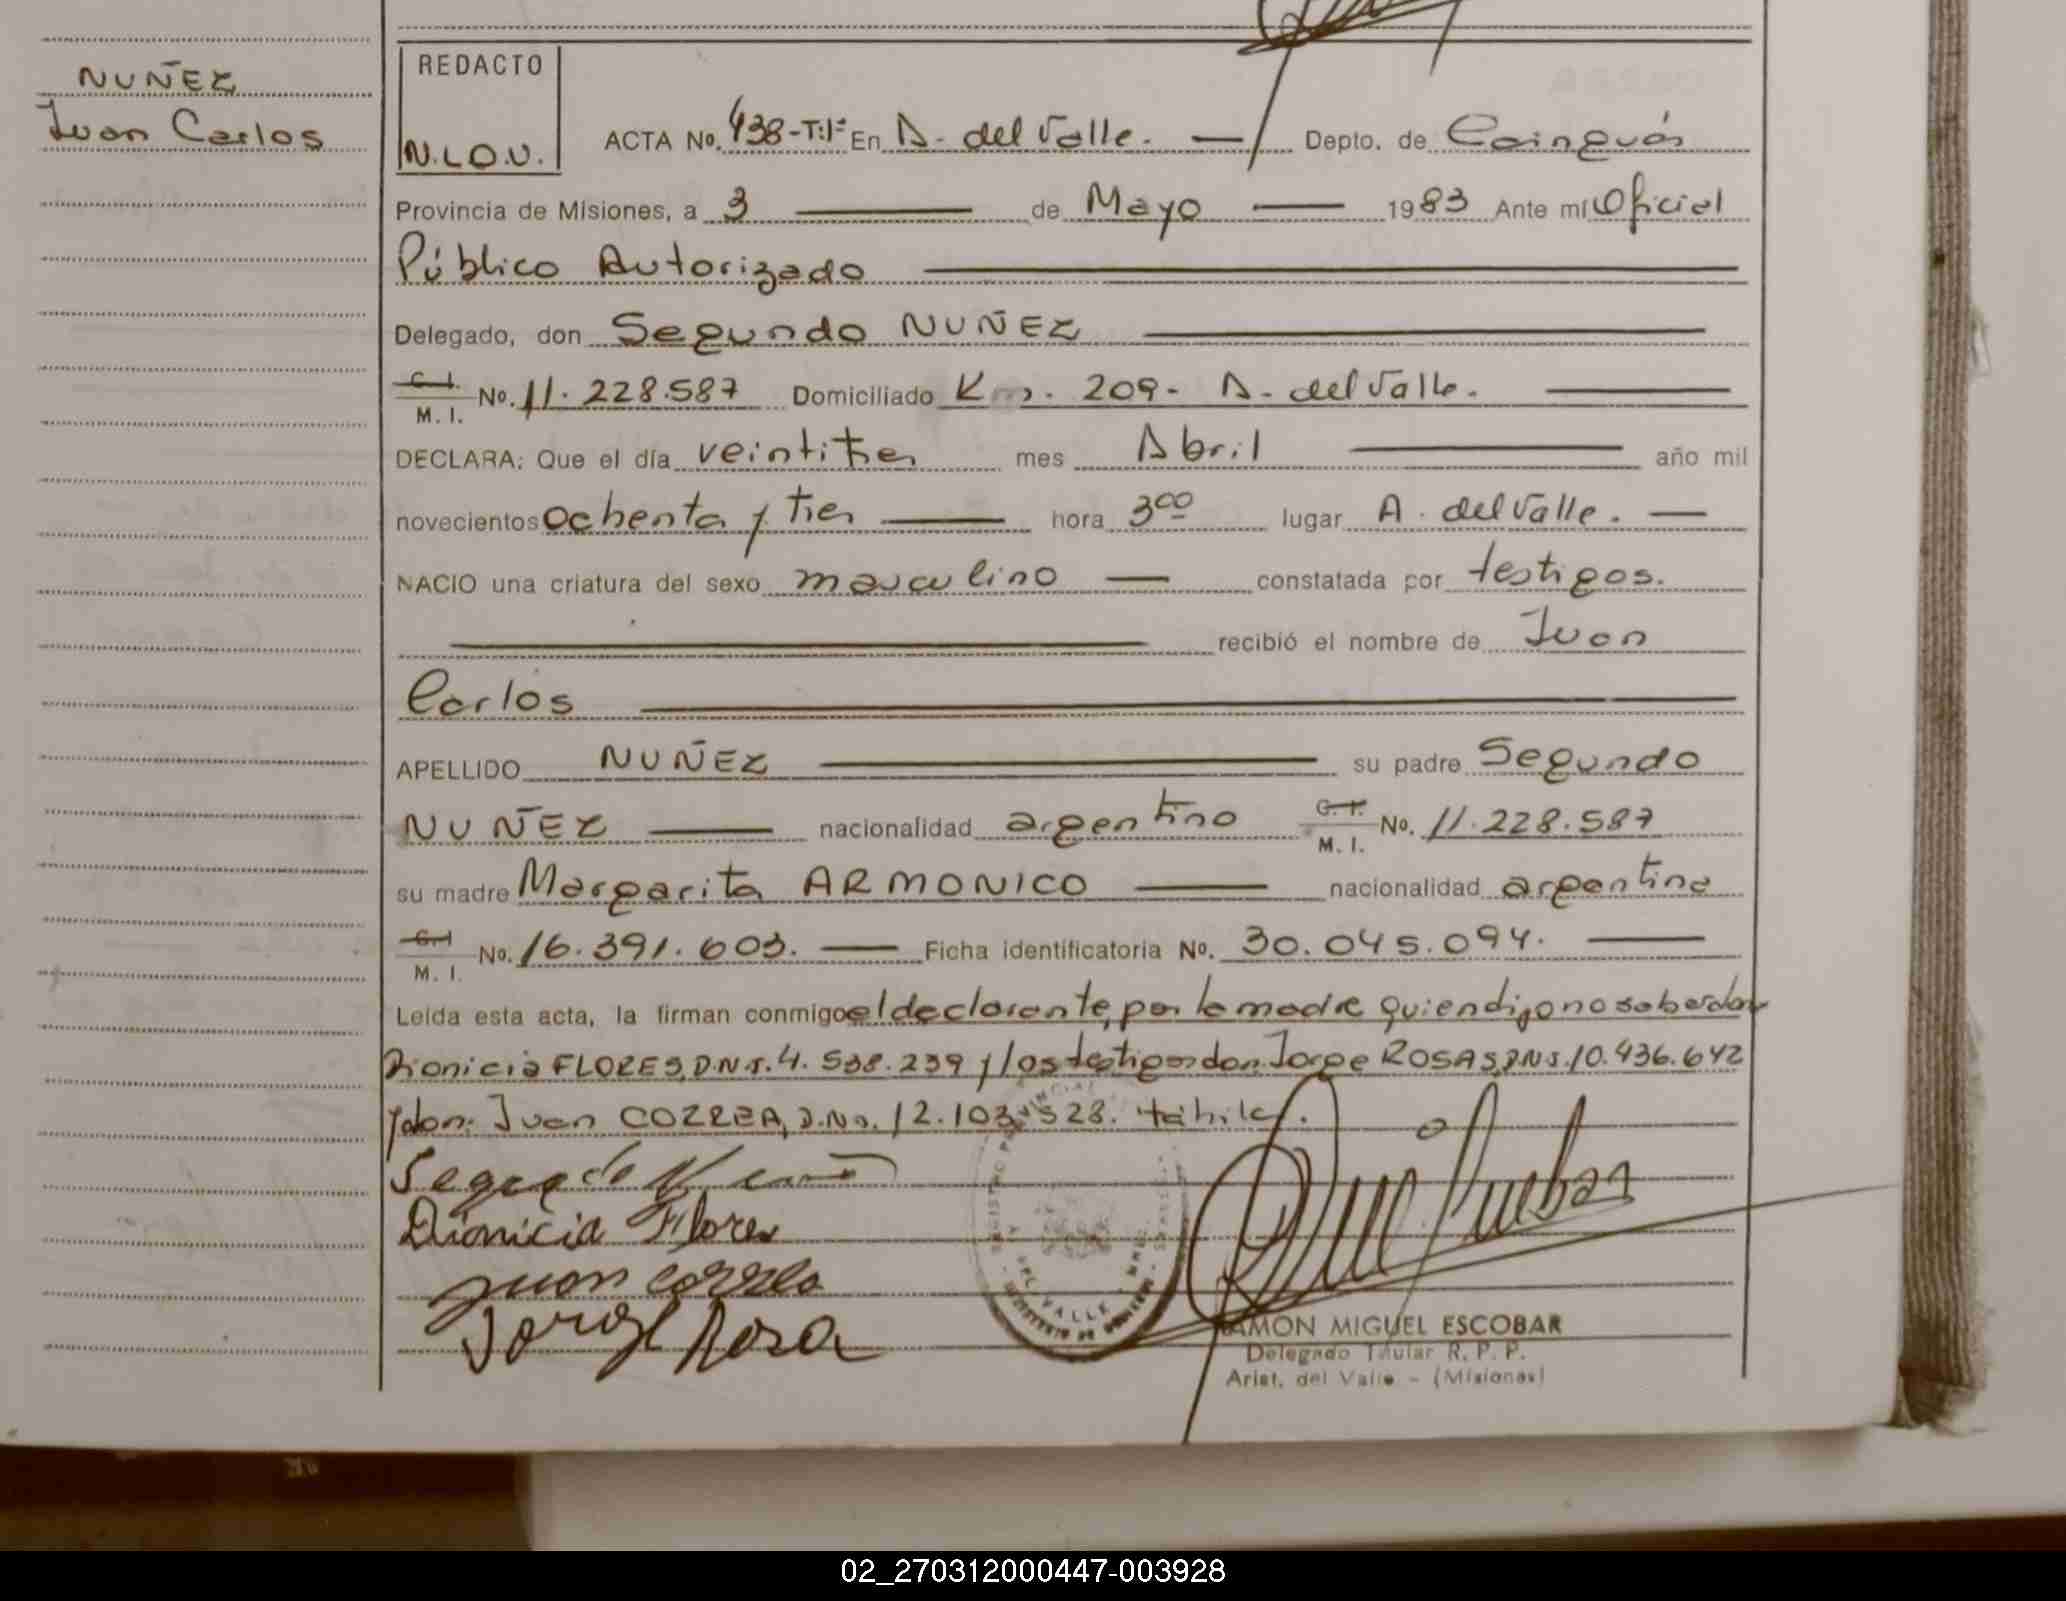 NUÑEZ
Juan Carlos
REDACTO
N.L.O.V.
ACTA No. 438-T:1º En A. del Valle. — Depto. de Cainguás
Provincia de Misiones, a 3 — de Mayo — 1983 Ante mí Oficial
Público Autorizado
Delegado, don Segundo NUÑEZ
C. I. M. I. No. 11.228.587 Domiciliado Km. 209- A. del Valle.
DECLARA: Que el día veintitres mes Abril año mil
novecientos ochenta y tres hora 3 00 lugar A. del Valle.
NACIO una criatura del sexo masculino constatada por testigos.
recibió el nombre de Juan
Carlos
APELLIDO NUÑEZ su padre Segundo
NUÑEZ nacionalidad argentino C. I. M. I. No. 11.228.587
su madre Margarita ARMONICO nacionalidad argentina
C. I. M. I. No. 16.391.603. Ficha identificatoria No. 30.045.094.
Leída esta acta, la firman conmigo el declarante, por la madre quien dijo no saber
Dionicia FLORES, D.N.I. 4.538.239 y los testigos don, Jorge ROSAS, D.N.I. 10.436.642
y don: Juan CORREA, D.N.I. 12.103.528.
Segundo
Dionicia Flores
Juan Correa
Jorge Rosa
DEL VALLE
RAMON MIGUEL ESCOBAR
Delegado Titular R. P. P.
Arist. del Valle - (Misiones)
02_270312000447-003928